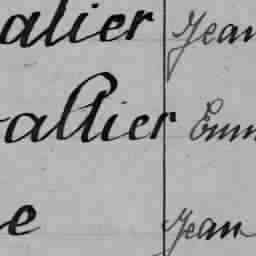 alier Jean
allier Emm
e Jean